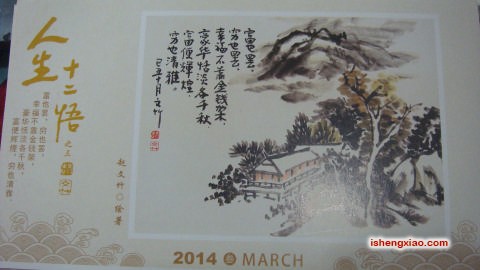 人生十二悟
之三
富也罢,穷也罢,
幸福不靠金钱架。
豪华恬淡各千秋,
富便辉煌,穷也清雅。
富也罢,
穷也罢,
幸福不靠金钱架,
豪华恬淡各千秋
富便辉煌,
穷也清雅。
己丑十月文竹
赵文竹○绘著
2014 叁 MARCH
ishengxiao.com